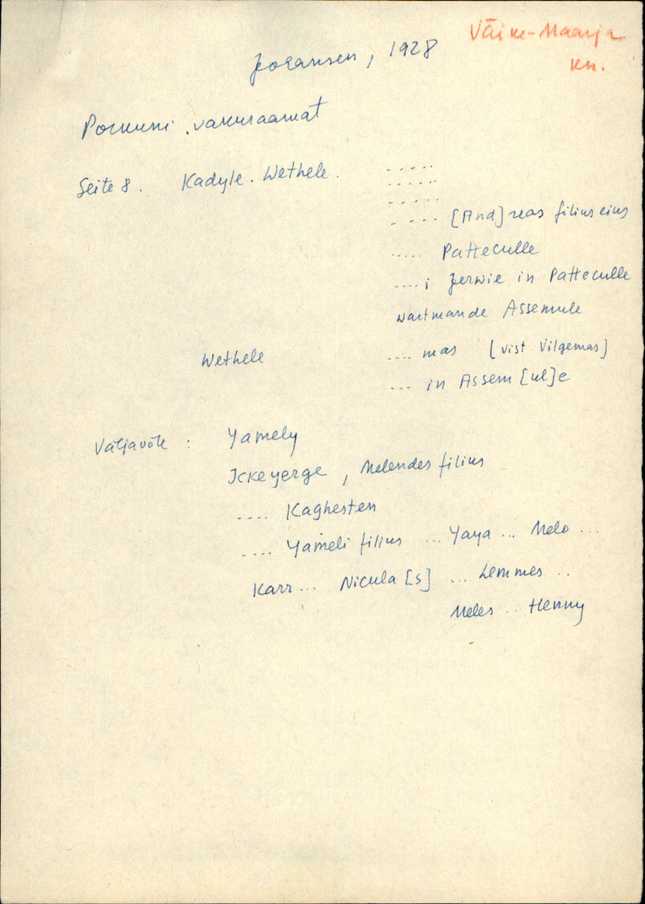 Väike-Maarja
kn.
Johansen, 1928
Porkuni vakuraamat
Seite 8. Kadyle. Wethele. .....
.....
.....
..... [And]reas filius eius
..... Patteculle
....i Jerwie in Patteculle
wartmande Assemule
Wethele .... mas [vist Vilgemas]
... in Assem[ul]e
Väljavõte : Yamely
Ickeyerge, Melendes filius
.... Kaghesten
.... Yameli filius ... Yaya ... Melo ...
Karr... Nicula[s] ... Lemmes ..
Meles .. Henny